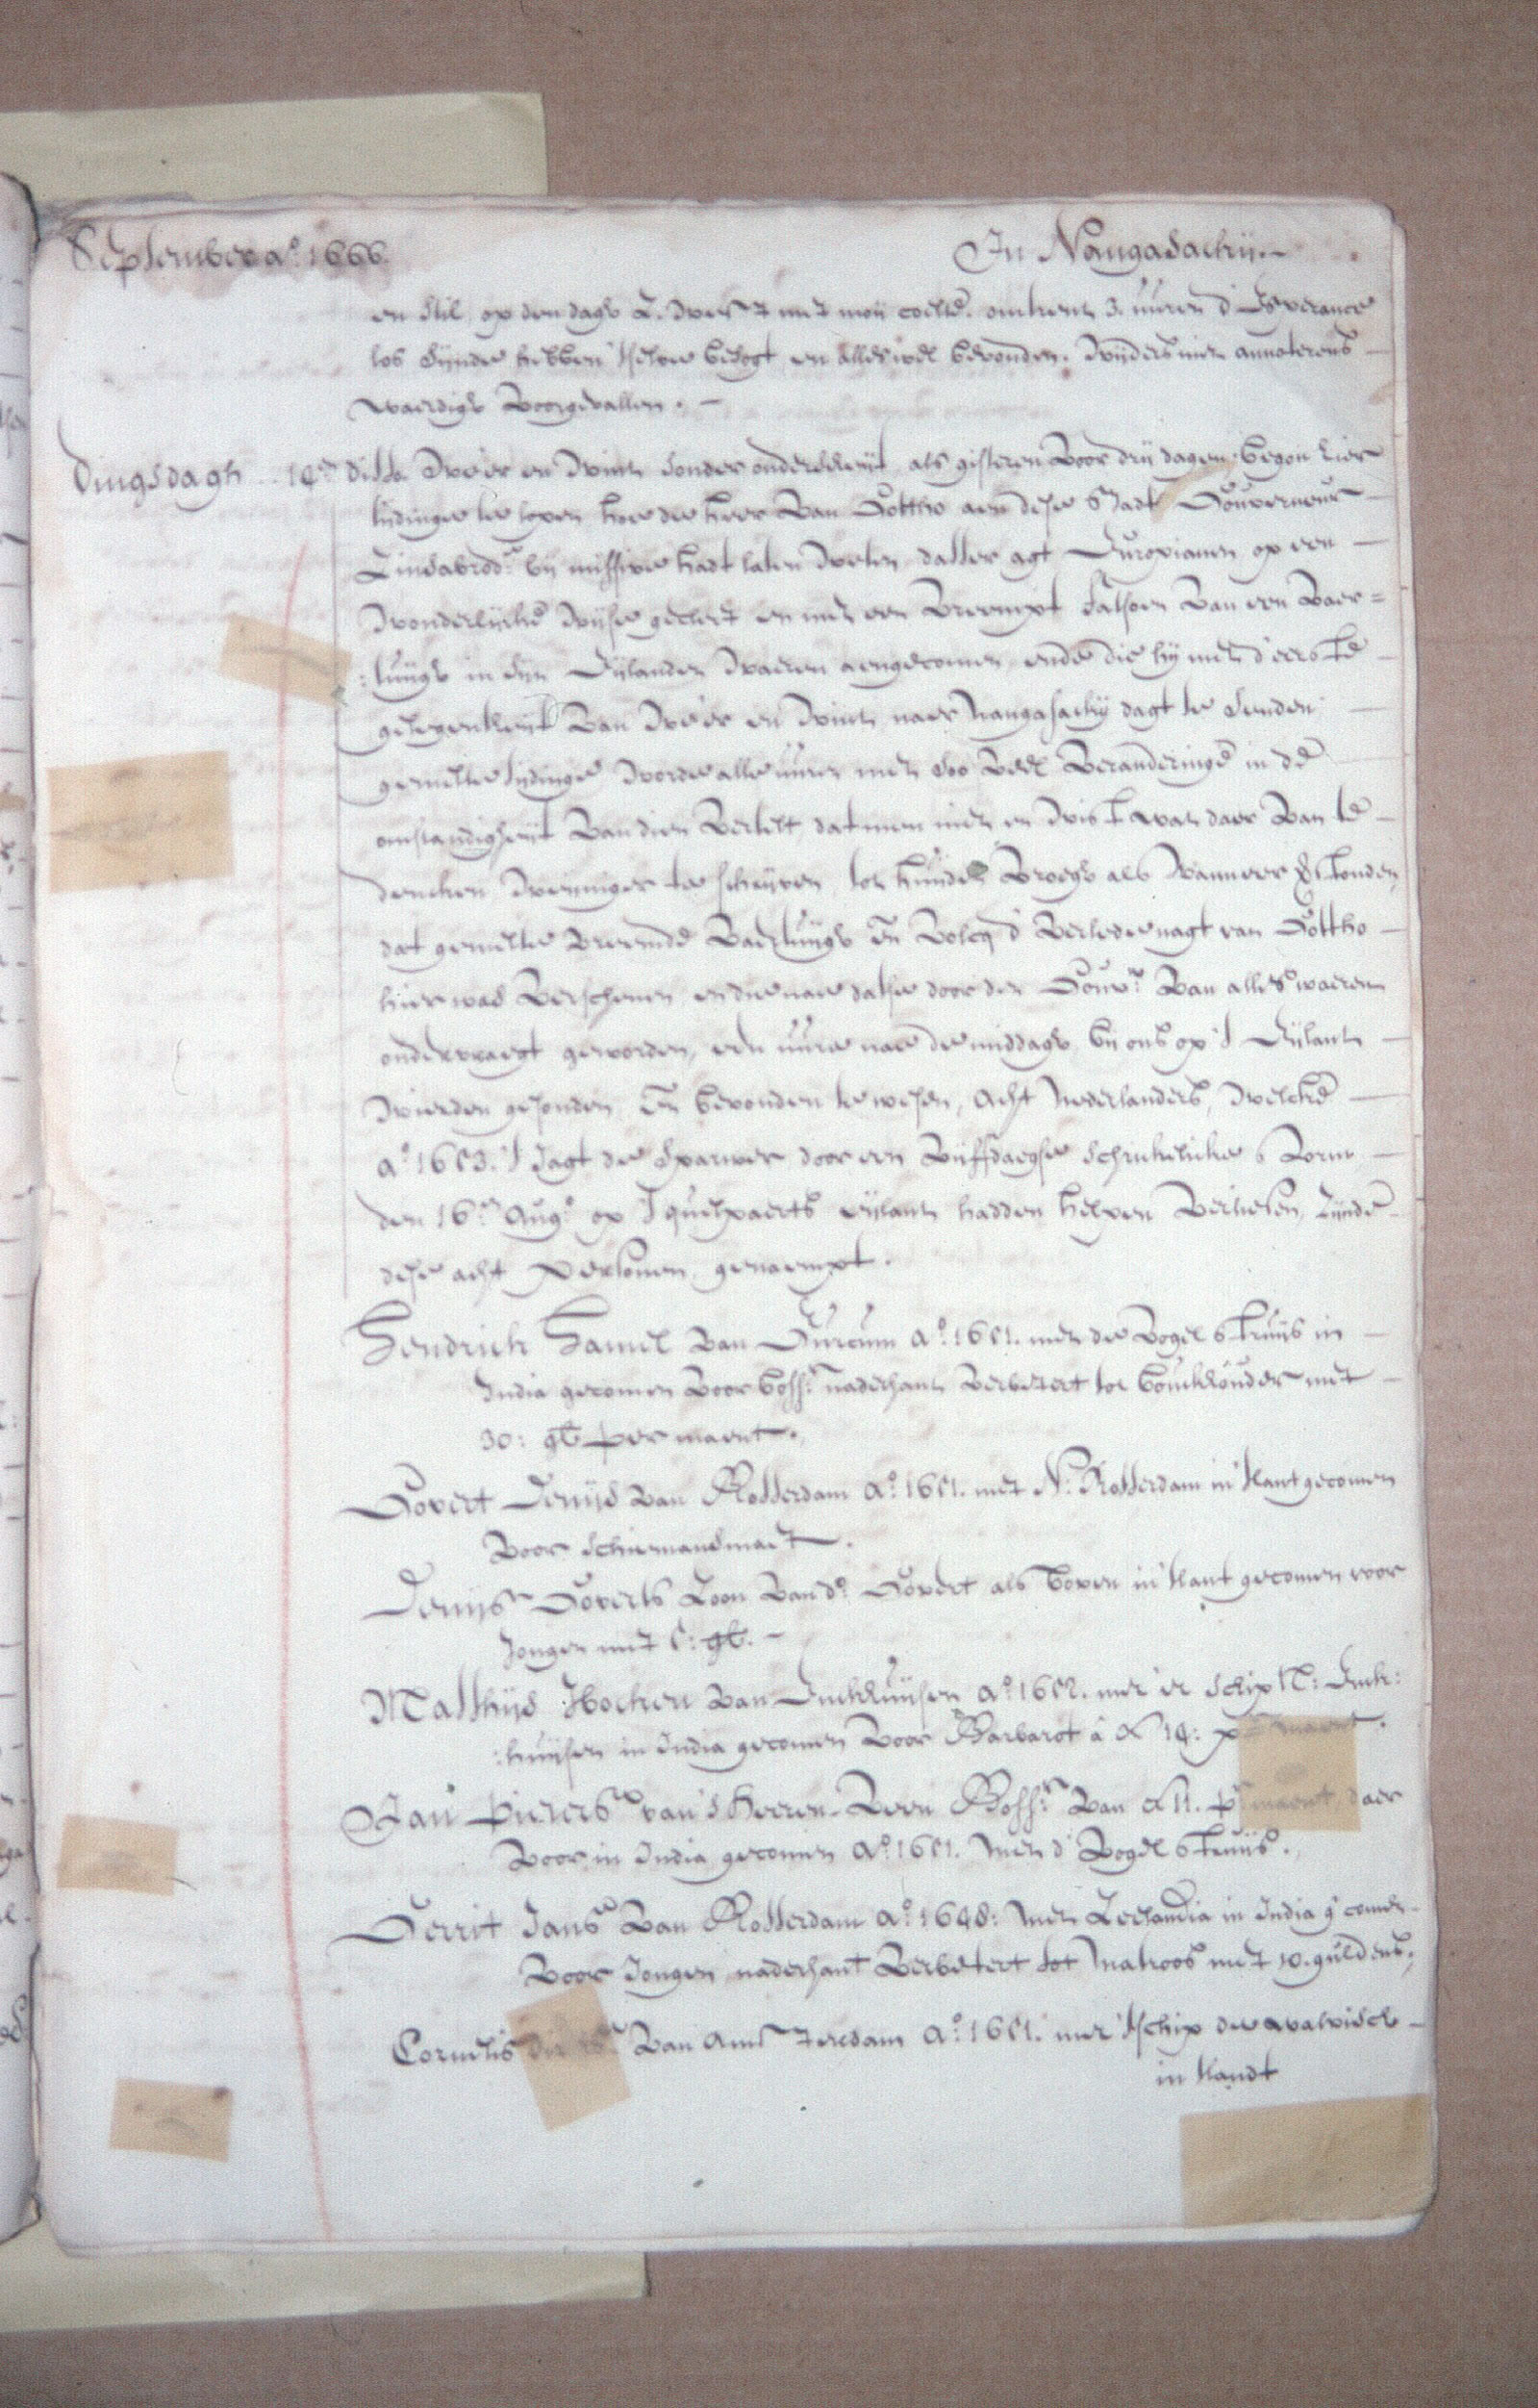 September a.º 1666.
In Nangasackij.
en stil, op den dagh Z. West met moij coelte. omtrent 3. uuren d' Esperance
los sijnde hebben 'tselve besogt en alles wel bevonden. Wijders niet annoterens
waerdigh voorgevallen.
Dingsdagh 14.en ditto Weer en Wint sonder onderscheijt als gisteren Voor drij dagen begon hier
tijdinge te lopen hoe de heer Van Gottho aen dese Stadt Gouverneur
bij missive hadt laten Weten datter agt Europianen op een
Wonderlijcke Wijse gecleet en met een Vreempt fatsoen Van een Vaer=
:tuijgh in sijn Eijlanden Waeren aengecomen, ende die hij met d'eerste
gelegentheijt Van Weer en Wint naer Nangasackij dagt te senden
gemelte tijdinge Worde alle uuren met soo Veel Veranderinge in de
omstandigheijt Van dien Vertelt dat men niet en Wist wat daer Van te
dencken Weijniger te schrijven, tot huijden Vroegh als Wanneer Verstonden,
dat gemelte Vreemde Vaertuijgh en Volcq d' Verlede nagt van Gottho
hier was Verschenen ende nae datse door den Gouvr. Van alles waeren
ondervraegt geworden, een uure nae de middagh bij ons op 't Eijlant
Wierden gesonden, en bevonden te wesen, Acht Nederlanders, Welcke
a.º 1653. 't Jagt de Sparwer door een Vijffdaegse schrickelicke Storm
den 16.en Aug.º op 't quelpaerts eijlant hadden helpen Verliesen, Zijnde
dese acht personen, genaempt.
Hendrick Hamel Van Gurcum a.º 1651. met de Vogel Struijs in
India gecomen Voor bossr. naderhant Verbetert tot bouckhouder met
30: gl per maent.
Govert Denijs Van Rotterdam A.º 1651. met N: Rotterdam in 't lant gecomen
Voor Schiemansmaet.
Denijs Goverts Zoon Van d.º Govert als boven in 't lant gecomen voor
Jongen met 5: gl.
Matthijs Ibocken Van Enckhuijsen A.º 1652. met 'et Schip N: Enck:
:huijsen in India gecomen Voor Barbarot â f 14: pr maent.
Jan Pieters van 's Heeren-Veen Bossr. Van f 11. pr maent daer
Voor in India gecomen A.º 1651. Met d' Vogel Struijs.
Gerrit Jans Van Rotterdam A.º 1648: Met Zeelandia in India g'comen
Voor Jongen naderhant Verbetert tot Matroos met 10. guldens,
Cornelis dircks Van Amsterdam A.º 1651. met 'tschip de walvisch
in 't landt